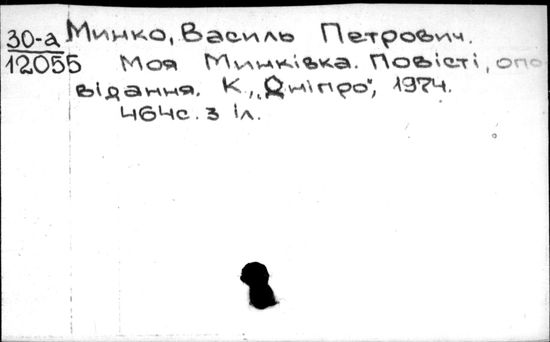 30-а Минко, Василь Петрович.
12055 Моя Минківка. Повісті, опо
відання. К., „Дніпро", 1974.
464с. з іл.